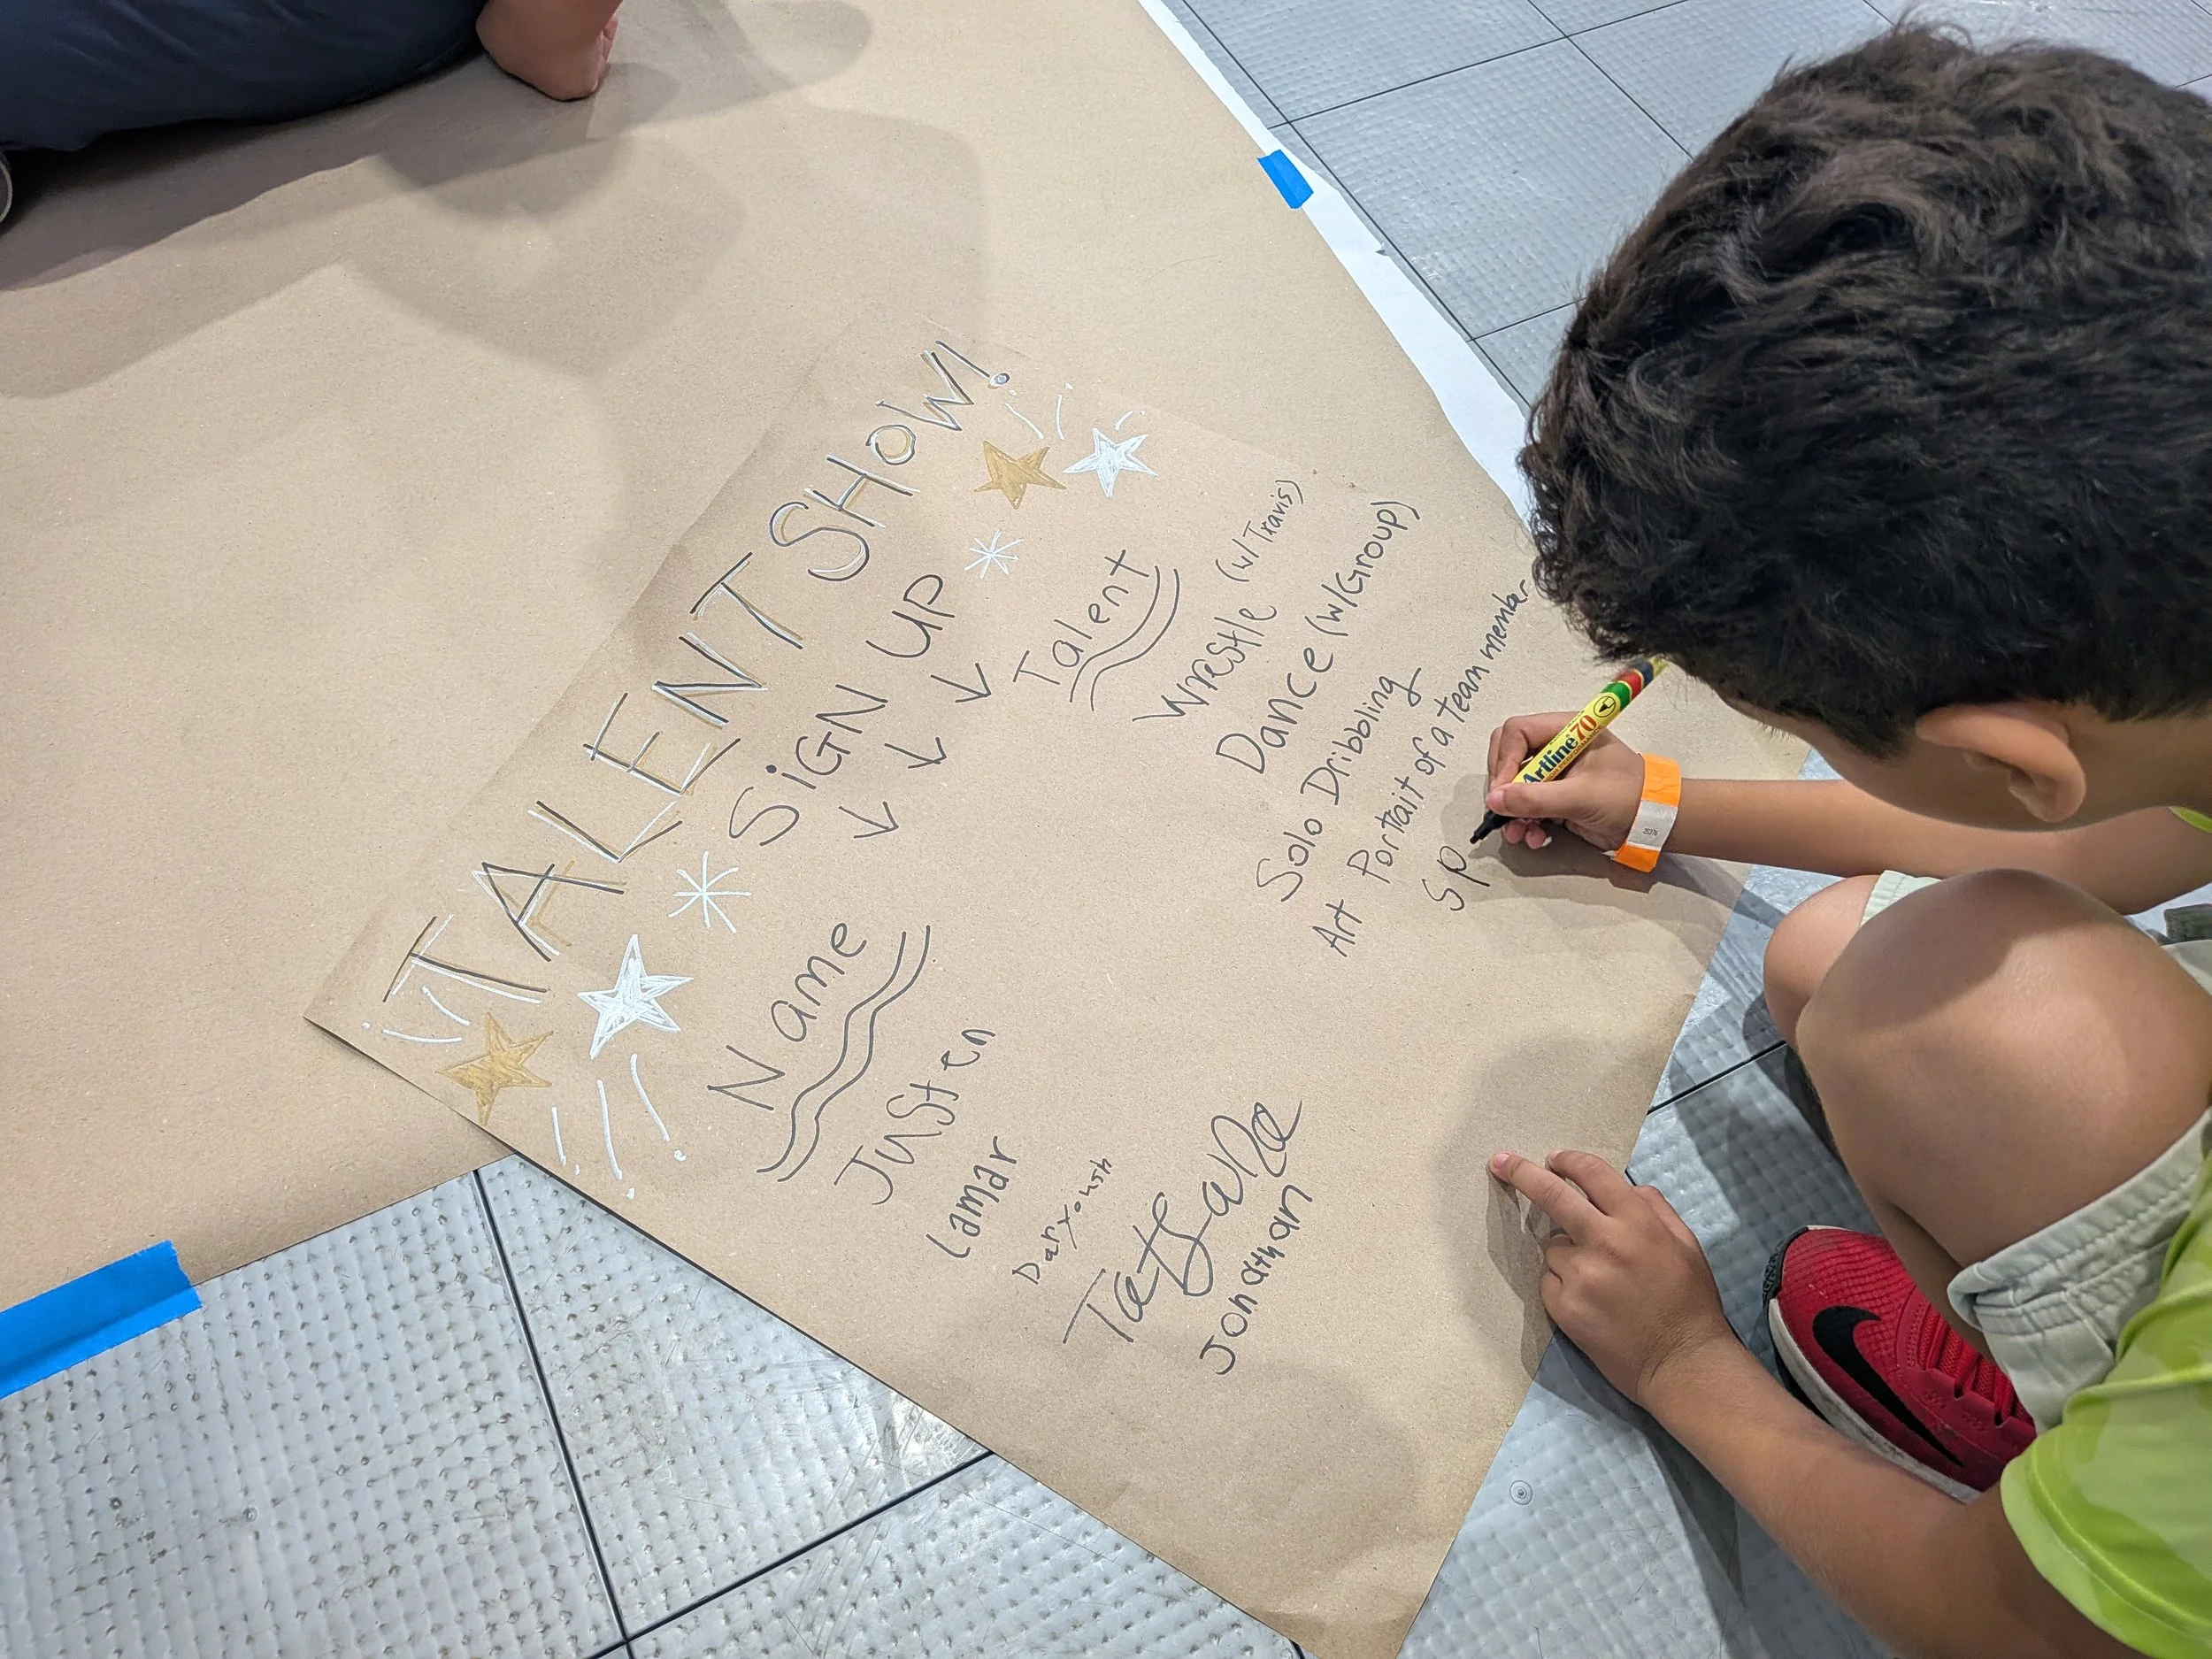 TALENT SHOW!
SIGN UP
Name
Talent
Justen
Wrestle (w/Travis)
Lamar
Dance (w/Group)
Daryoush
Solo Dribbling
Art Portrait of a team member
Jonathan
Sp
Artline 70